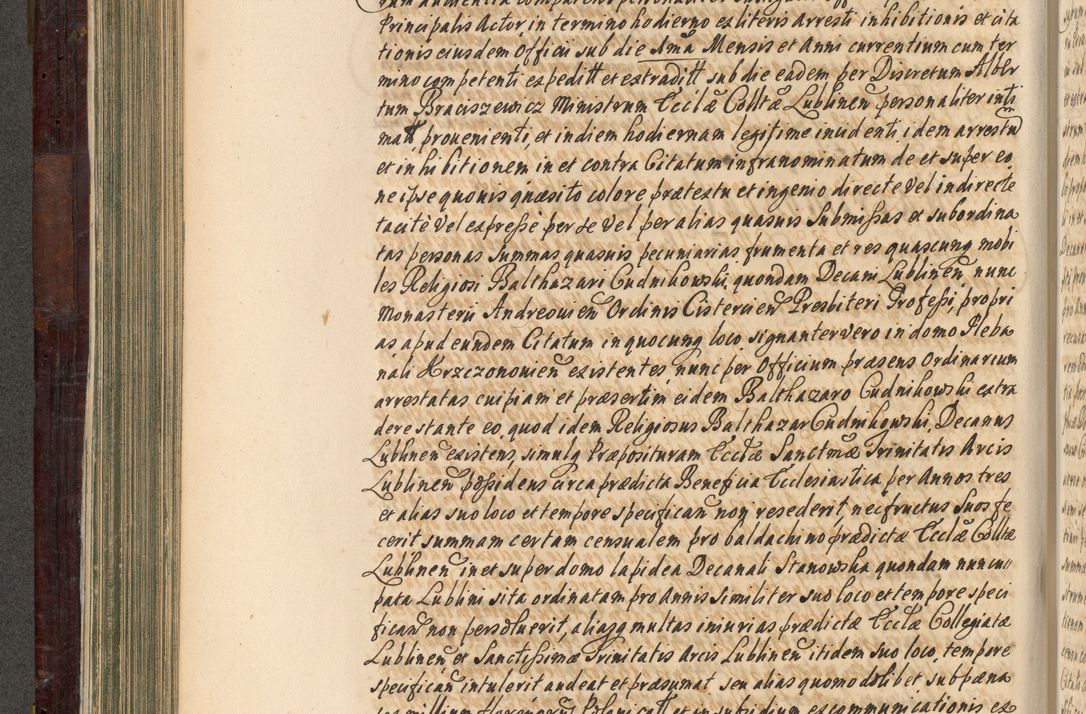 Principalis Actor, in termino hodierno ex literis Arresti inhibitionis et cita
tionis eiusdem Officii sub die 8mã Mensis et Anni currentium cum ter
mino competenti expeditt et extraditt sub die eadem per Discretum Alber
tum Braciszewicz Ministrum Ecclæ Colltæ Lublinen̄ personaliter inti
matt, prouenienti, et in diem hodiernam legitime incidenti, idem arrestũ
et inhibitionem in et contra Citatum infranominatum de et super eo,
ne ipse quouis quæsito colore prætextu et ingenio directe vel indirecte
tacitè vel expressè per se vel per alias quasuis submissas et subordina
tas personas summas quasuis pecuniarias frumenta et res quascunq mobi
les Religiosi Balthazari Cudnikowski, quondam Decani Lublinen̄ nunc
Monasterii Andreouien̄ Ordinis Cistercien̄ Presbiteri Professi, propri
as, apud eundem Citatum in quocunq loco, signanter vero in domo Pleba
nali Krzczonouien̄ existentes, nunc per Officium præsens Ordinarium
arrestatas cuipiam et præsertim eidem Balthazaro Cudnikowski extra
dere stante eo, quod idem Religiosus Balthazar Cudnikowski, Decanus
Lublinen̄ existens, simulq Præposituram Ecclæ Sanctmæ Trinitatis Arcis
Lublinen̄ possidens circa prædicta Beneficia Ecclesiastica per Annos tres
et alias suo loco et tempore specifican̄ non resederit, nec fructus suos fe
cerit summam certam censualem pro baldachino prædictæ Ecclæ Colltæ
Lublinen̄ in et super domo lapidea Decanali Stanowska quondam nuncu
pata Lublini sita ordinatam pro Annis similiter suo loco et tempore speci
fican̄ non persoluerit, aliasq multas iniurias prædictæ Ecclæ Collegiatæ
Lublinen̄ et Sanctissimæ Trinitatis Arcis Lublinen̄ itidem suo loco, tempore
specifican̄ intulerit audeat et præsumat seu alias quomodolibet sub pæna